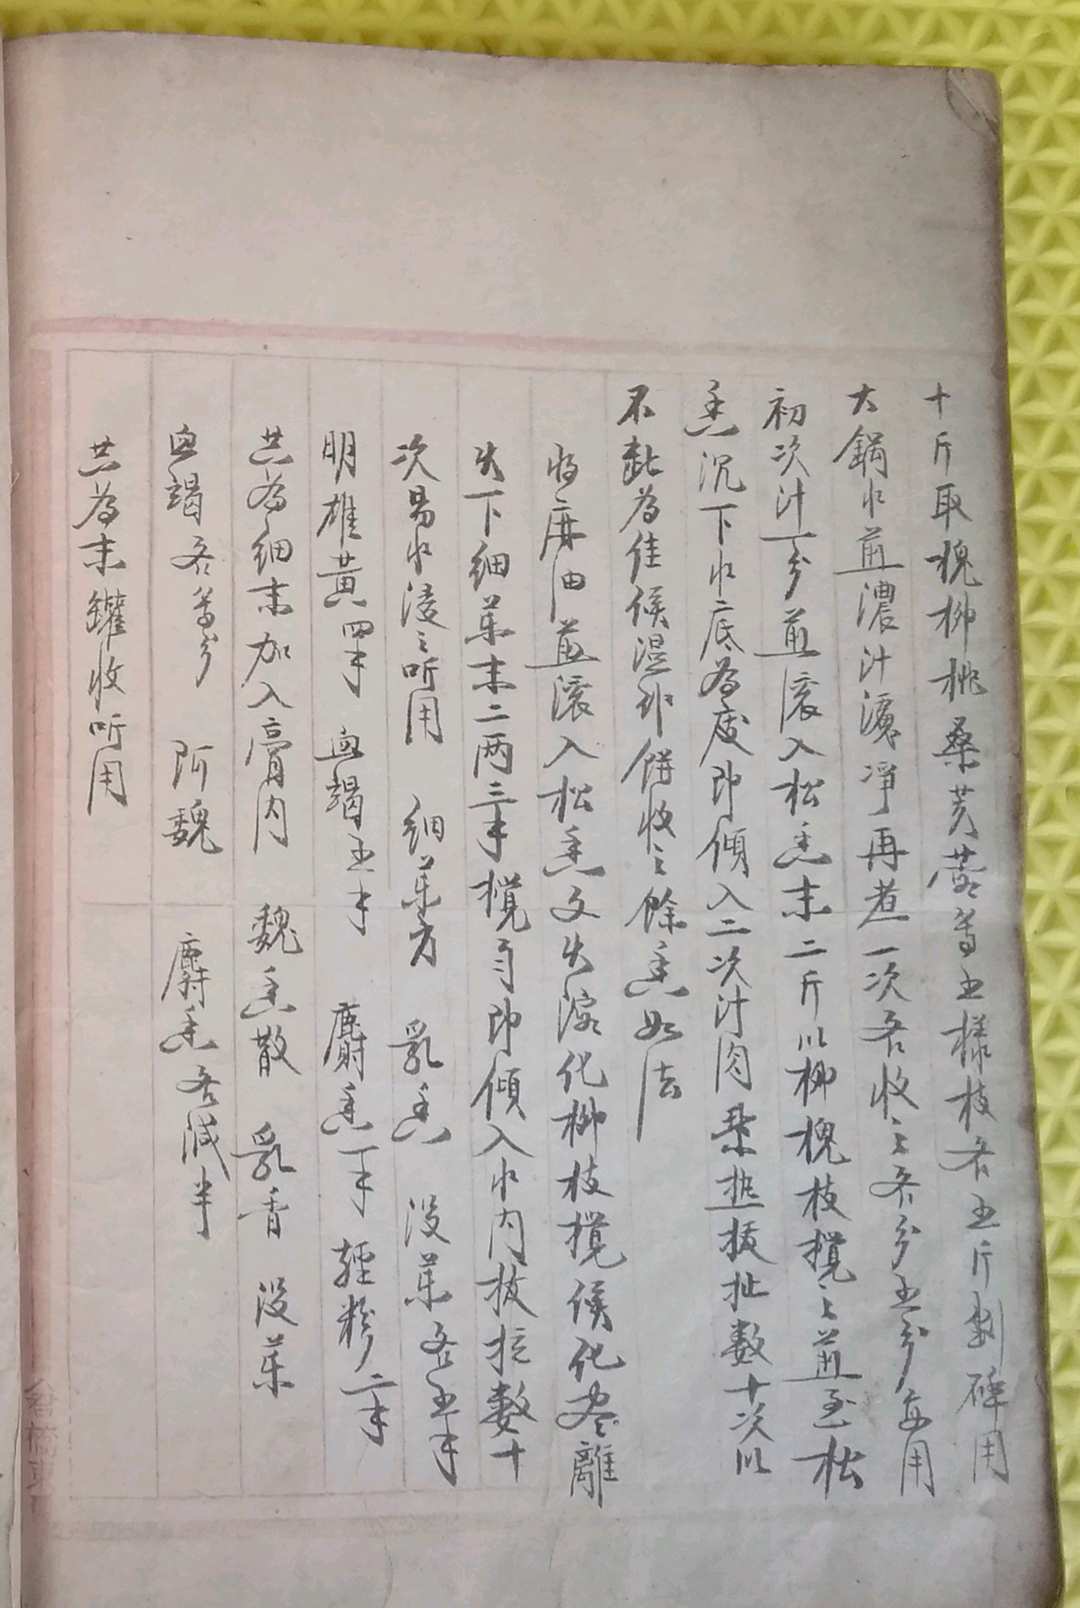 十斤取槐柳桃桑芙蓉等五樣枝各五斤剉碎用
大鍋水煎濃汁濾凈再煮一次各收之各分五分每用
初次汁一分煎滚入松香末二斤以柳槐枝攪之煎至松
香沉下水底為度即傾入二次汁内柔扯拔扯数十次以
不断為佳候温作餅收之餘香如法
將麻油煎滚入松香文火溶化柳枝攪候化盡離
火下細药末二两三錢攪匀即傾入水内拔扯數十
次易水浸之听用 細药方 乳香 没药各五錢
明雄黄四錢 血竭五錢 麝香一錢 輕粉二錢
共為細末加入膏内 魏香散 乳香 没药
血竭各等分 阿魏 麝香各减半
共為末罐收听用